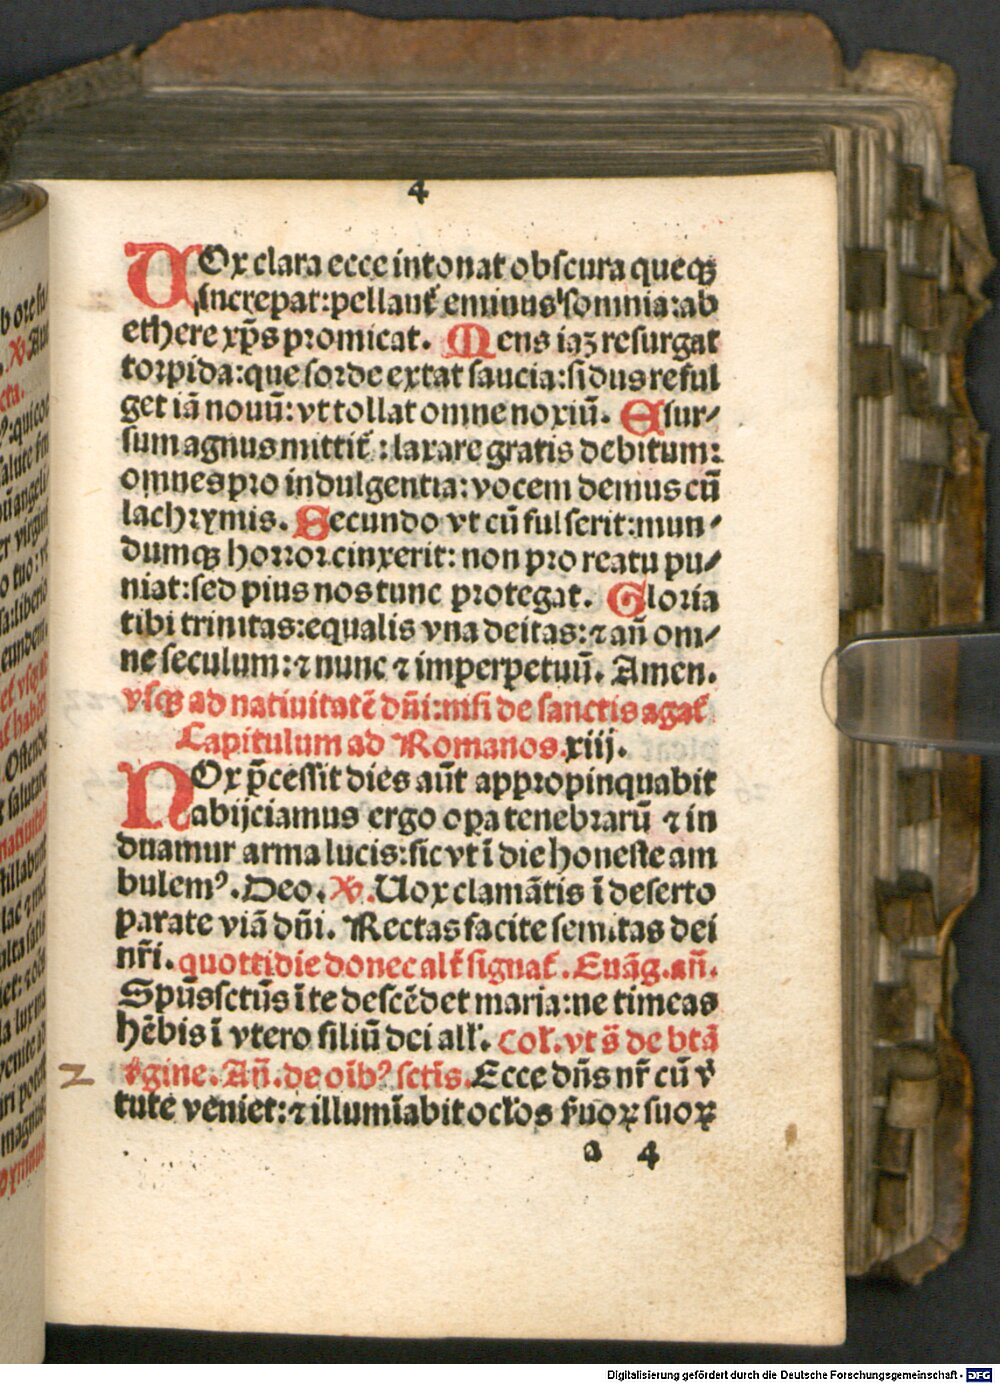 4
VOx clara ecce intonat obscura queqꝫ
increpat:pellant᷑ eminus somnia:ab
ethere xp̄s promicat. Mens iaꝫ resurgat
torpida:que sorde extat saucia:sidus reful
get iā nouū:vt tollat omne noxiū. Esur⸗
sum agnus mittit᷑ :laxare gratis debitum:
omnes pro indulgentia:vocem demus cū
lachrymis. Secundo vt cū fulserit:mun⸗
dumqꝫ horror cinxerit: non pro reatu pu⸗
niat:sed pius nos tunc protegat. Gloria
tibi trinitas:equalis vna deitas:⁊ an̄ om⸗
ne seculum:⁊ nunc ⁊ imperpetuū. Amen.
vsqꝫ ad natiuitatē dn̄i:nisi de sanctis agat᷑
Capitulum ad Romanos.xiij.
NOx p̄cessit dies aūt appropinquabit
abijciamus ergo oꝑa tenebrarū ⁊ in
duamur arma lucis:sic vt ī die honeste am
bulemꝰ.Deo. V̓. Uox clamātis ī deserto
parate viā dn̄i. Rectas facite semitas dei
nr̄i. quottidie donec alt᷑ signat᷑. Euāg.an̄.
Spūssctūs ī te descēdet maria:ne timeas
hēbis ī vtero filiū dei all'. Col'. vt s̄ de btā
v̓gine. An̄. de oībꝰ sctīs. Ecce dn̄s nr̄ cū v̓
tute veniet:⁊ illumīabit ocl'os ẜuoꝝ suoꝝ
a 4
2
Digitalisierung gefördert durch die Deutsche Forschungsgemeinschaft - DFG